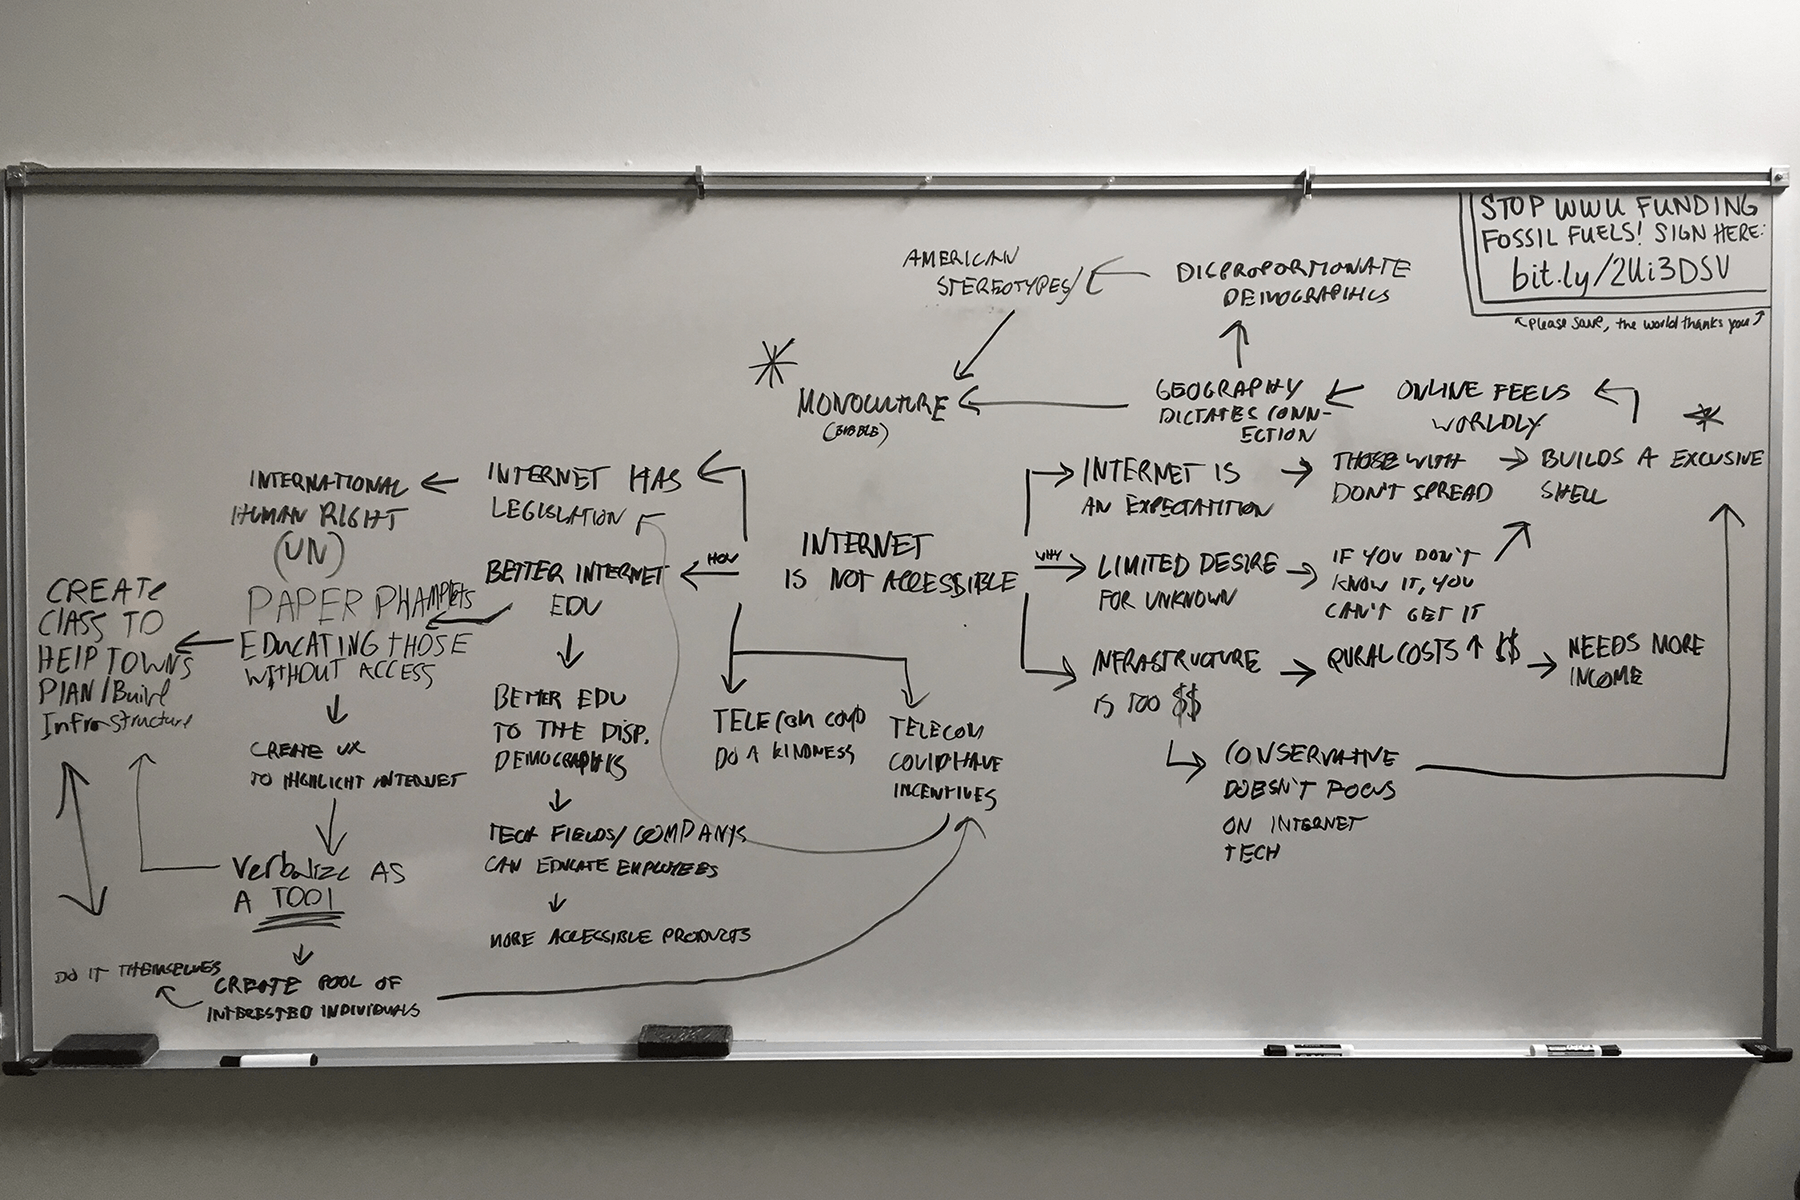 STOP WWU FUNDING
FOSSIL FUELS! SIGN HERE:
bit.ly/2Ui3DSV
Please save, the world thanks you
AMERICAN
STEREOTYPES/
DISPROPORTIONATE
DEMOGRAPHICS
MONOCULTURE
(BUBBLE)
GEOGRAPHY
DICTATES CONN-
ECTION
ONLINE FEELS
WORLDLY
INTERNET IS
AN EXPECTATION
THOSE WITH
DON'T SPREAD
BUILDS A EXCUSIVE
SHELL
INTERNET
IS NOT ACCESSIBLE
WHY
LIMITED DESIRE
FOR UNKNOWN
IF YOU DON'T
KNOW IT, YOU
CAN'T GET IT
INFRASTRUCTURE
IS TOO $$
RURAL COSTS ↑ $$
NEEDS MORE
INCOME
CONSERVATIVE
DOESN'T FOCUS
ON INTERNET
TECH
HOW
INTERNET HAS
LEGISLATION
INTERNATIONAL
HUMAN RIGHT
(UN)
BETTER INTERNET
EDU
PAPER PHAMPLETS
EDUCATING THOSE
WITHOUT ACCESS
CREATE
CLASS TO
HELP TOWNS
PLAN/Build
Infrastructure
CREATE UX
TO HIGHLIGHT INTERNET
Verbalize AS
A TOOL
CREATE POOL OF
INTERESTED INDIVIDUALS
DO IT THEMSELVES
BETTER EDU
TO THE DISP.
DEMOGRAPHICS
TECH FIELDS/COMPANYS
CAN EDUCATE EMPLOYEES
MORE ACCESSIBLE PRODUCTS
TELECOM COULD
DO A KINDNESS
TELECOM
COULD HAVE
INCENTIVES